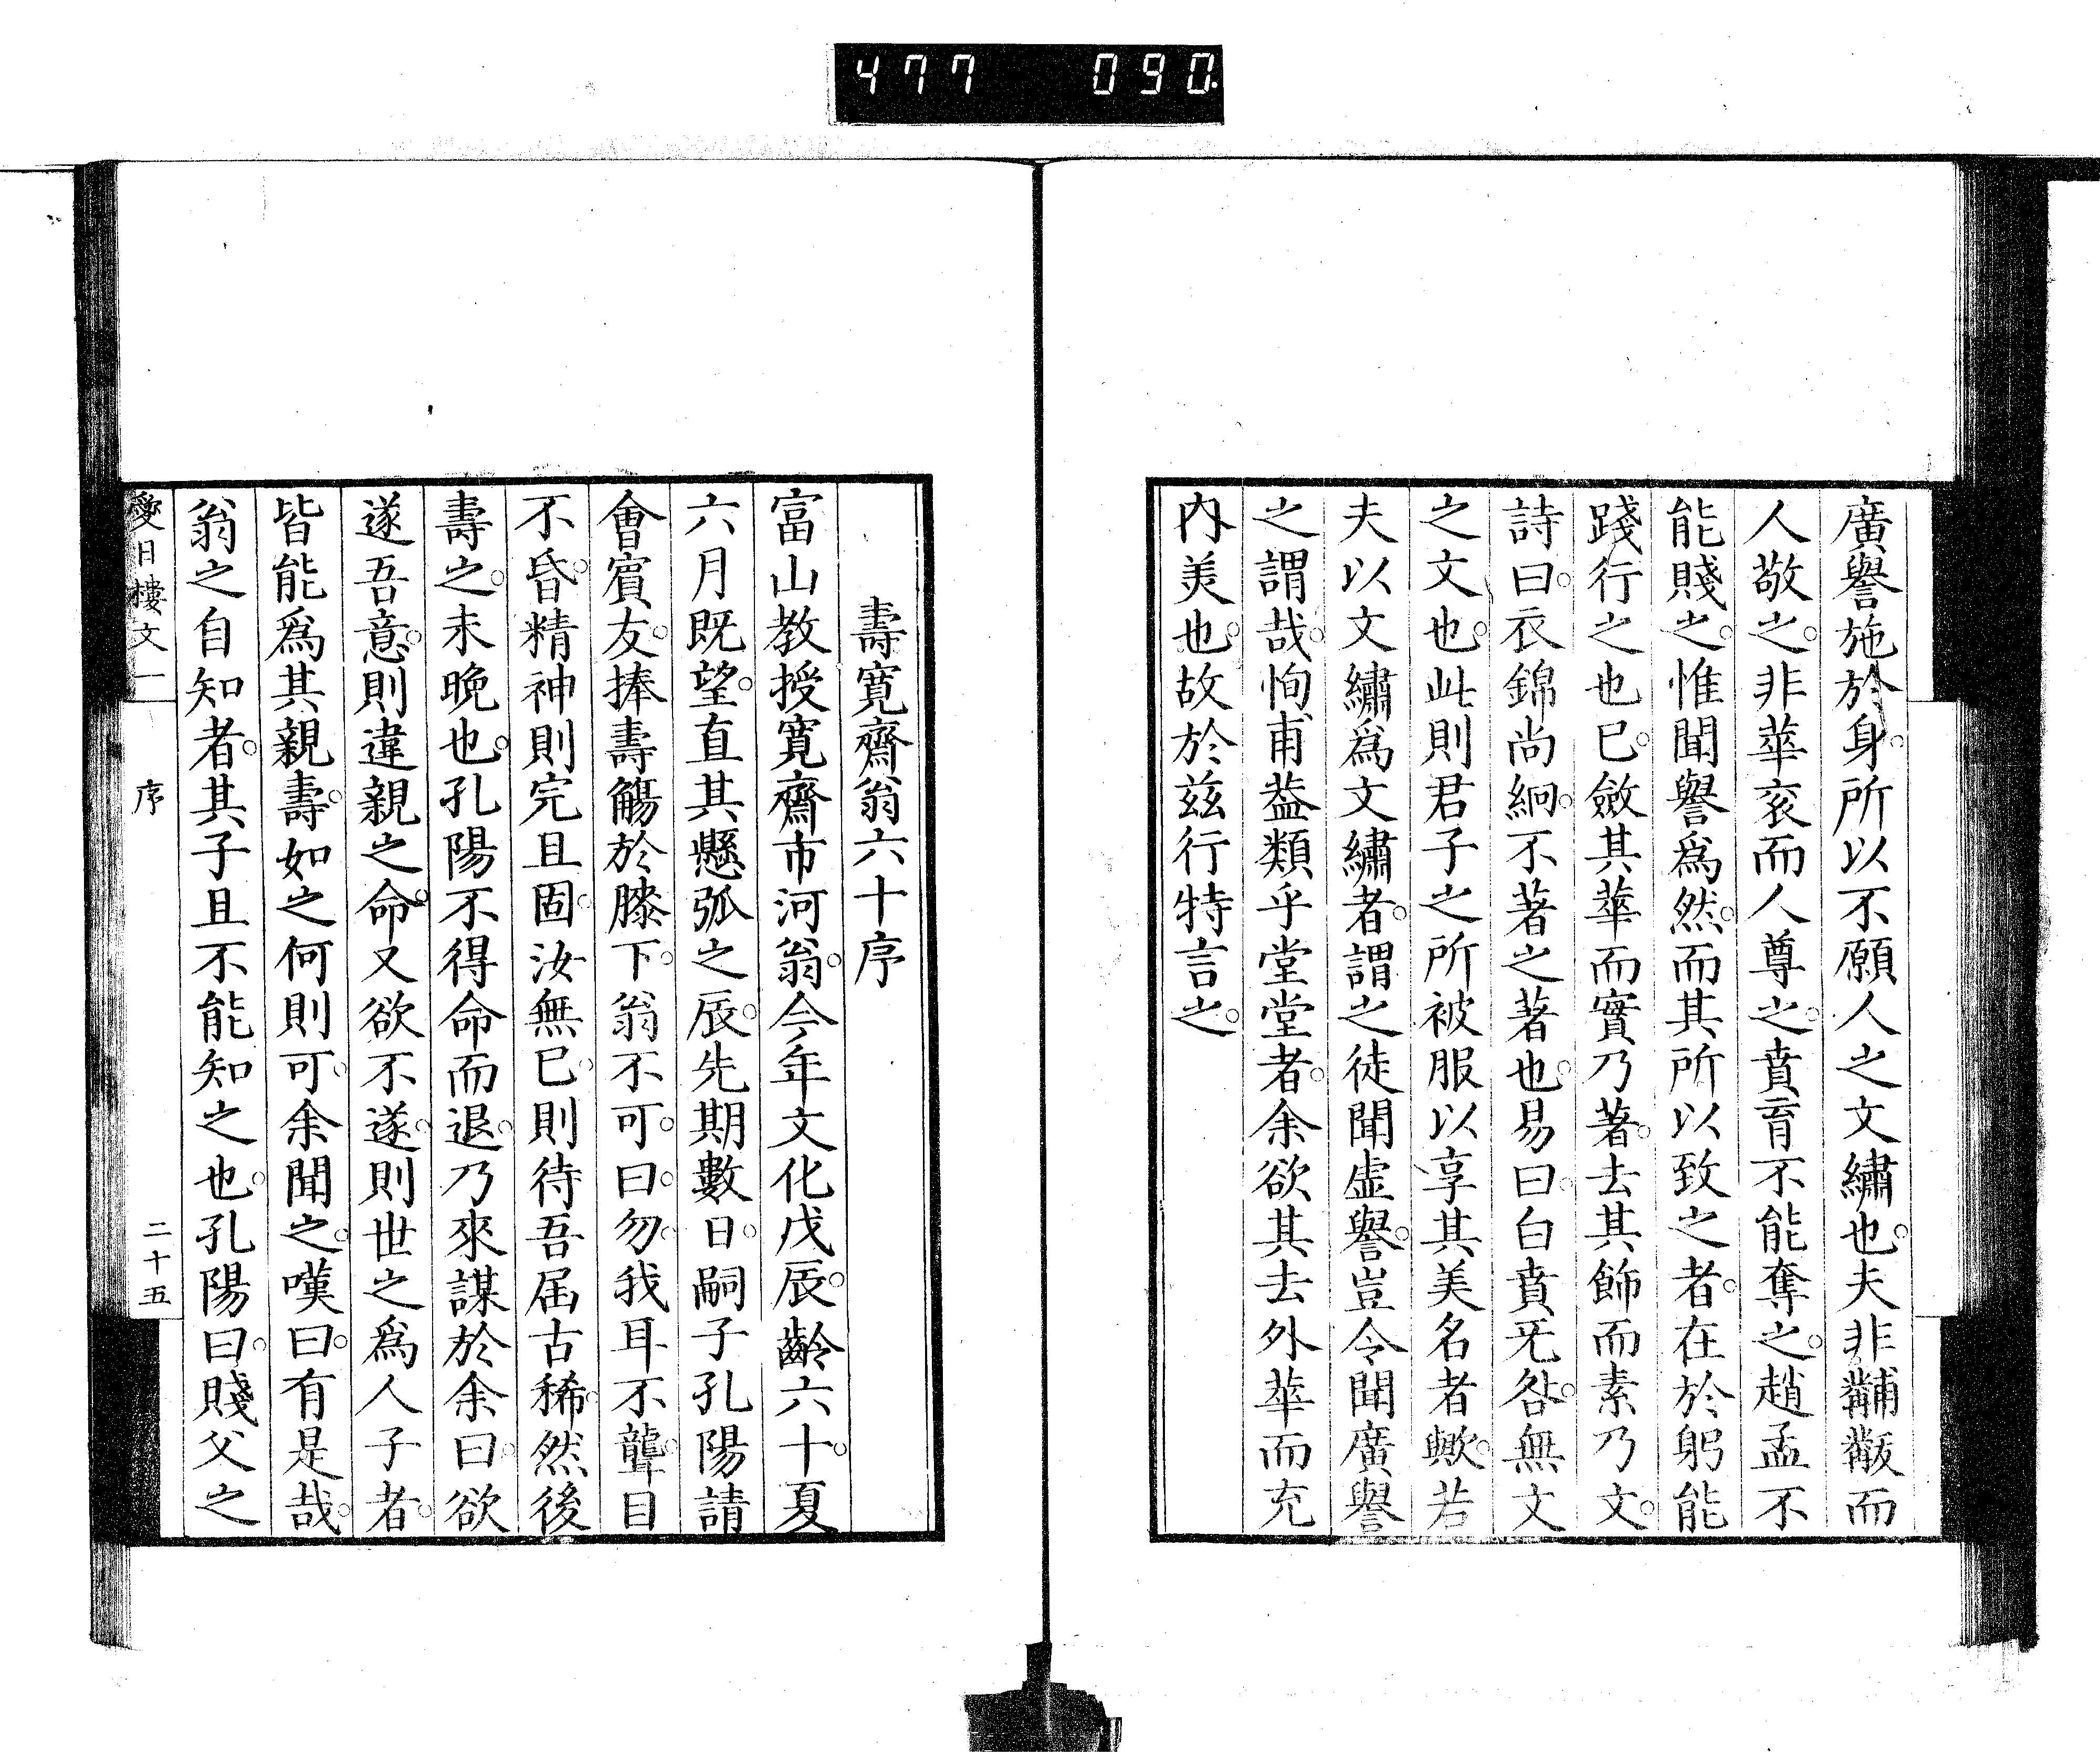 477 090
廣譽施於身。所以不願人之文繡也。夫非黼黻而
人敬之。非華衮而人尊之。賁育不能奪之。趙孟不
能賤之。惟聞譽爲然。而其所以致之者。在於躬能
踐行之也已。斂其華而實乃著。去其飾而素乃文。
詩曰。衣錦尚絅。不著之著也。易曰。白賁旡咎。無文
之文也。此則君子之所被服以享其美名者歟。若
夫以文繡爲文繡者。謂之徒聞虛譽。豈令聞廣譽
之謂哉。恂甫葢類乎堂堂者。余欲其去外華而充
内美也。故於茲行特言之。
壽寛齋翁六十序
富山教授寛齋市河翁。今年文化戊辰。齡六十。夏
六月既望。直其懸弧之辰。先期數日。嗣子孔陽請
會賓友。捧壽觴於膝下。翁不可。曰。勿。我耳不聾。目
不昏。精神則完且固。汝無已。則待吾届古稀。然後
壽之。未晩也。孔陽不得命而退。乃來謀於余曰。欲
遂吾意。則違親之命。又欲不遂。則世之爲人子者。
皆能爲其親壽。如之何則可。余聞之。嘆曰。有是哉。
翁之自知者。其子且不能知之也。孔陽曰。賤父之
愛日樓文一 序 二十五